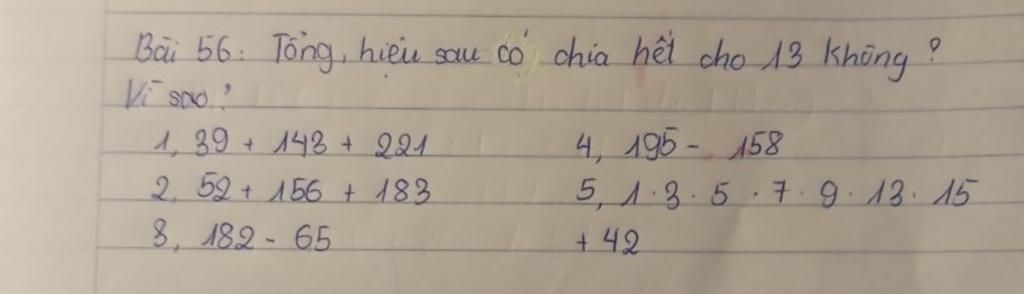 Bài 56: Tổng, hiệu sau có chia hết cho 13 không?
Vì sao?
1, 39 + 143 + 221
4, 195 - 158
2, 52 + 156 + 183
5, 1 . 3 . 5 . 7 . 9 . 13 . 15
3, 182 - 65
+ 42